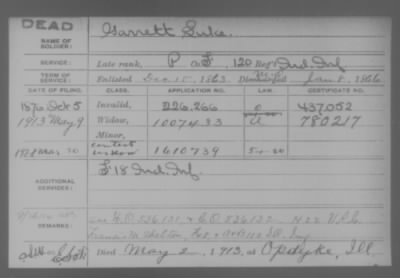 DEAD
Garrett Luke.
NAME OF SOLDIER:
SERVICE:
Late rank, P Co F, 120 Reg't Ind. Inf
TERM OF SERVICE:
Enlisted Dec. 15, 1863. Jan 8, 1866
DATE OF FILING. CLASS. APPLICATION NO. LAW. CERTIFICATE NO.
1876 Oct 5 Invalid, 226,266 437,052
1913 May 9 Widow, 1007433 780217
Minor,
contest widow 1610739 5-1-20
ADDITIONAL SERVICES:
F 18 Ind. Inf.
REMARKS:
C.O. 526122
Francis M. Skelton, Ill. Inf
Died May 2, 1913, at Opdyke, Ill.